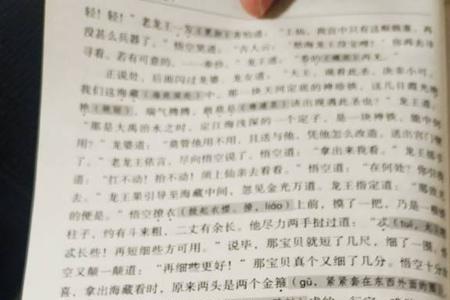 轻！轻！”老龙王
没甚么兵器了。”悟空笑道：“古人云：‘愁海龙王没宝哩！’你再去寻
寻看。若有可意的，一一奉价。”龙王道：
正说处，后面闪过龙婆、龙女道：“大王，观看此圣，决非小可。
我们这海藏 中，那一块天河定底的神珍铁，这几日霞光艳
艳 ，瑞气腾腾， 该出现遇此圣也？”龙王道：
“那是大禹治水之时，定江海浅深的一个定子，是一块神铁，能中何
用？”龙婆道：“莫管他用不用，且送与他，凭他怎么改造，送出宫门
便了。”老龙王依言，尽向悟空说了。悟空道：“拿出来我看。”龙王摇手
道：“扛不动！抬不动！须上仙亲去看看。”悟空道：“在何处？你引我
去。”龙王果引导至海藏中间，忽见金光万道。龙王指定道：“那放光
的便是。”悟空撩衣（掀起衣襟。撩，liāo）上前，摸了一把，乃是一根铁
柱子，约有斗来粗，二丈有余长。他尽力两手挝过道：“忒
忒长些！再短细些方可用。”说毕，那宝贝就短了几尺，细了一围。悟
空又颠一颠道：“再细些更好！”那宝贝真个又细了几分。悟空十分
喜，拿出海藏看时，原来两头是两个金箍（gū，紧紧套在东西外面的圈